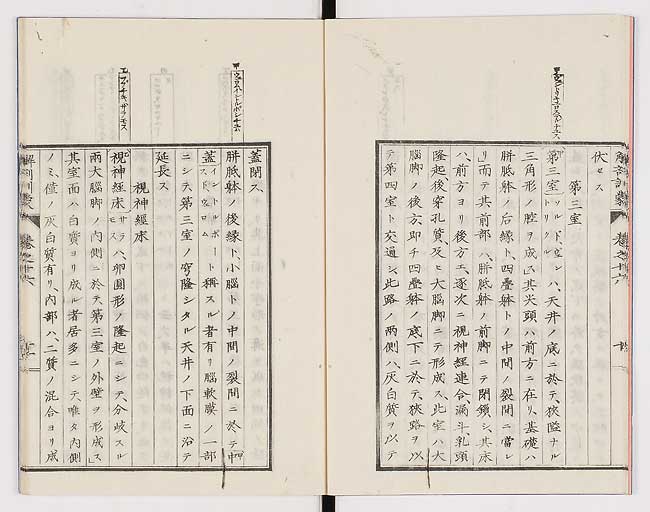 伏セス
第三室
第三室ハ、天井ノ底ニ於テ、狹隘ナル
三角形ノ腔ヲ成ス其尖頭ハ前方ニ在リ、基礎ハ
胼胝躰ノ后縁ト四疊躰トノ中間ノ裂開ニ當レ
リ而テ其前部ハ、胼胝躰ノ前脚ニテ閉鎖シ、其床
ハ、前方ヨリ後方エ、逐次ニ視神經連合、漏斗、乳頭
隆起後穿孔質及ヒ大腦脚ニテ形成ス此室ハ大
腦脚ノ後方即チ四疊躰ノ底下ニ於テ、狹路ヲ以
テ第四室ト交通シ、此路ノ兩側ハ、灰白質ヲ以テ
蓋閉ス
胼胝躰ノ後縁ト、小腦トノ中間ノ裂開ニ於テ中
蓋ト稱スル者有リ腦軟膜ノ一部
ニシテ第三室ノ穹隆シタル天井ノ下面ニ沿テ
延長ス
視神經床
視神經床ハ、卵圓形ノ隆起ニシテ、分岐スル
兩大腦脚ノ內側ニ於テ、第三室ノ外壁ヲ形成ス
其室面ハ白質ヨリ成ル者居多ニシテ、唯タ內側
ノミ、僅ノ灰白質有リ、內部ハ、二質ノ混合ヨリ成